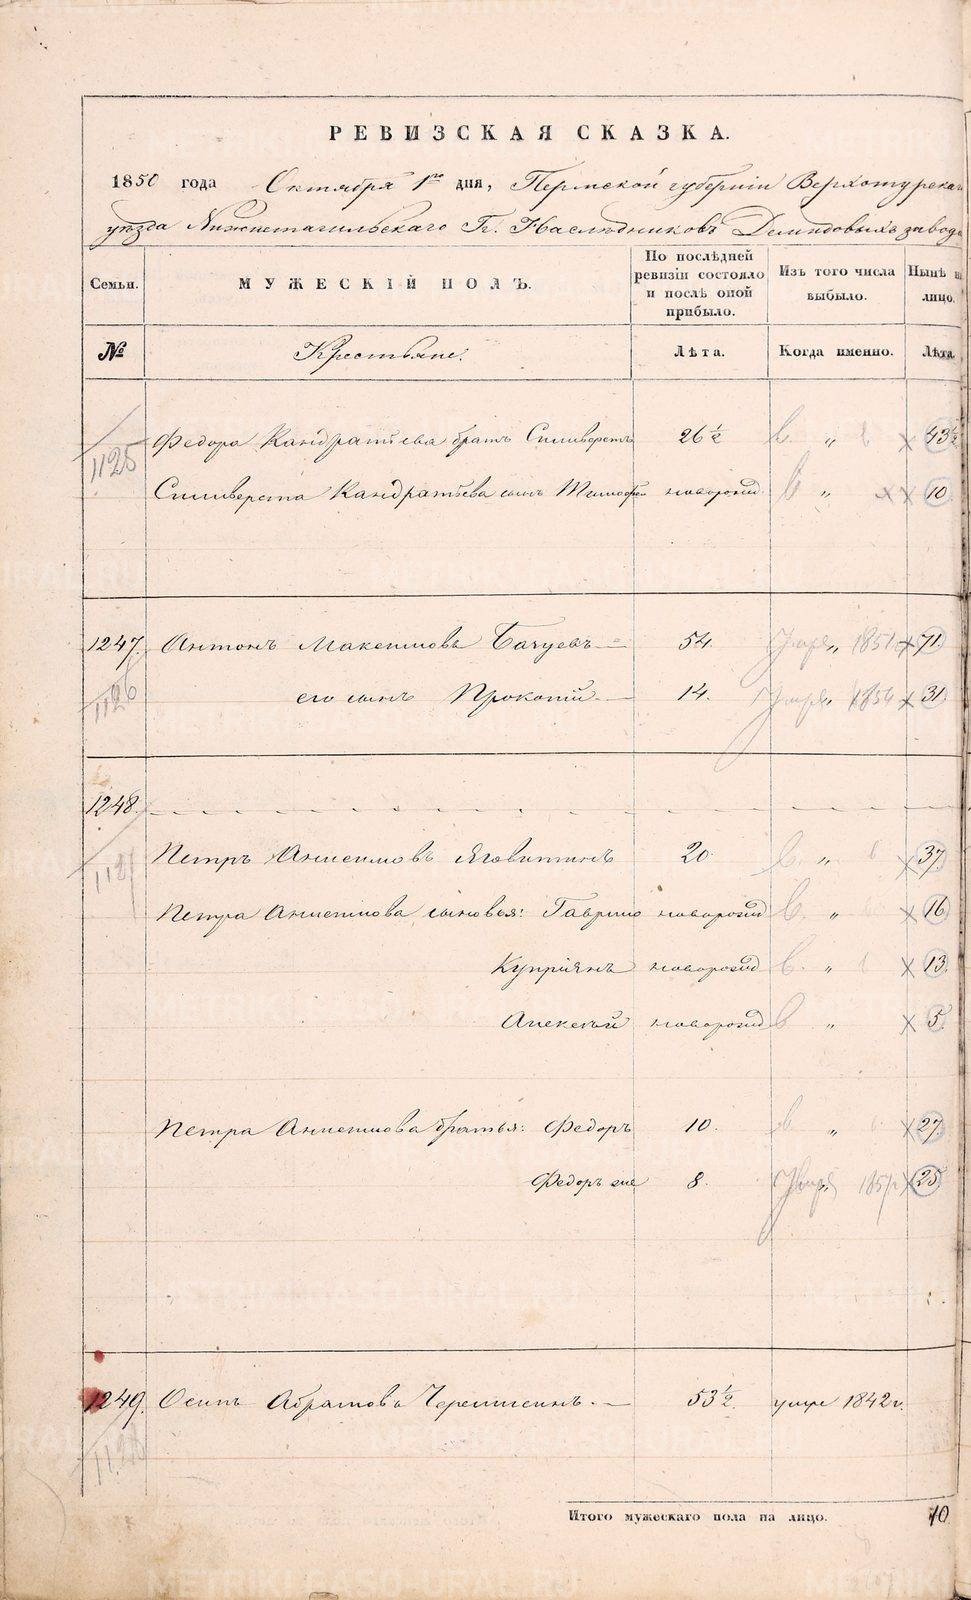 РЕВИЗСКАЯ СКАЗКА.
1850 года Октября 1го дня, Пермской губернiи Верхотурскаго
уѣзда Нижнетагильскаго Гг. Наслѣдниковъ Демидовыхъ завода
Семьи. МУЖЕСКIЙ ПОЛЪ. По послѣдней ревизiи состояло и послѣ оной прибыло. Изъ того числа выбыло. Нынѣ на лицо.
№ Крестьяне. Лѣта. Когда именно. Лѣта
1125 Федора Кандратьева братъ Сильверстъ 26½ „ 43½
Сильверста Кандратьева сынъ Тимофей новорожд. „ 10
1247. Антонъ Максимовъ Бачуевъ 54. „ 1851 71
1126 его сынъ Прокопiй 14. „ 1854 31
1248.
1127 Петръ Анисимовъ Яговитинъ 20 „ 37
Петра Анисимова сыновья: Гаврило новорожд „ 16
Купрiянъ новорожд „ 13
Алексѣй новорожд „ 5
Петра Анисимова братья: Федоръ 10. „ 27
Федоръ же 8. „ 25
1249. Осипъ Абрамовъ Черемисинъ. 53½ умре 1842 г.
Итого мужескаго пола на лицо. 10
METRIKI.GASO-URAL.RU